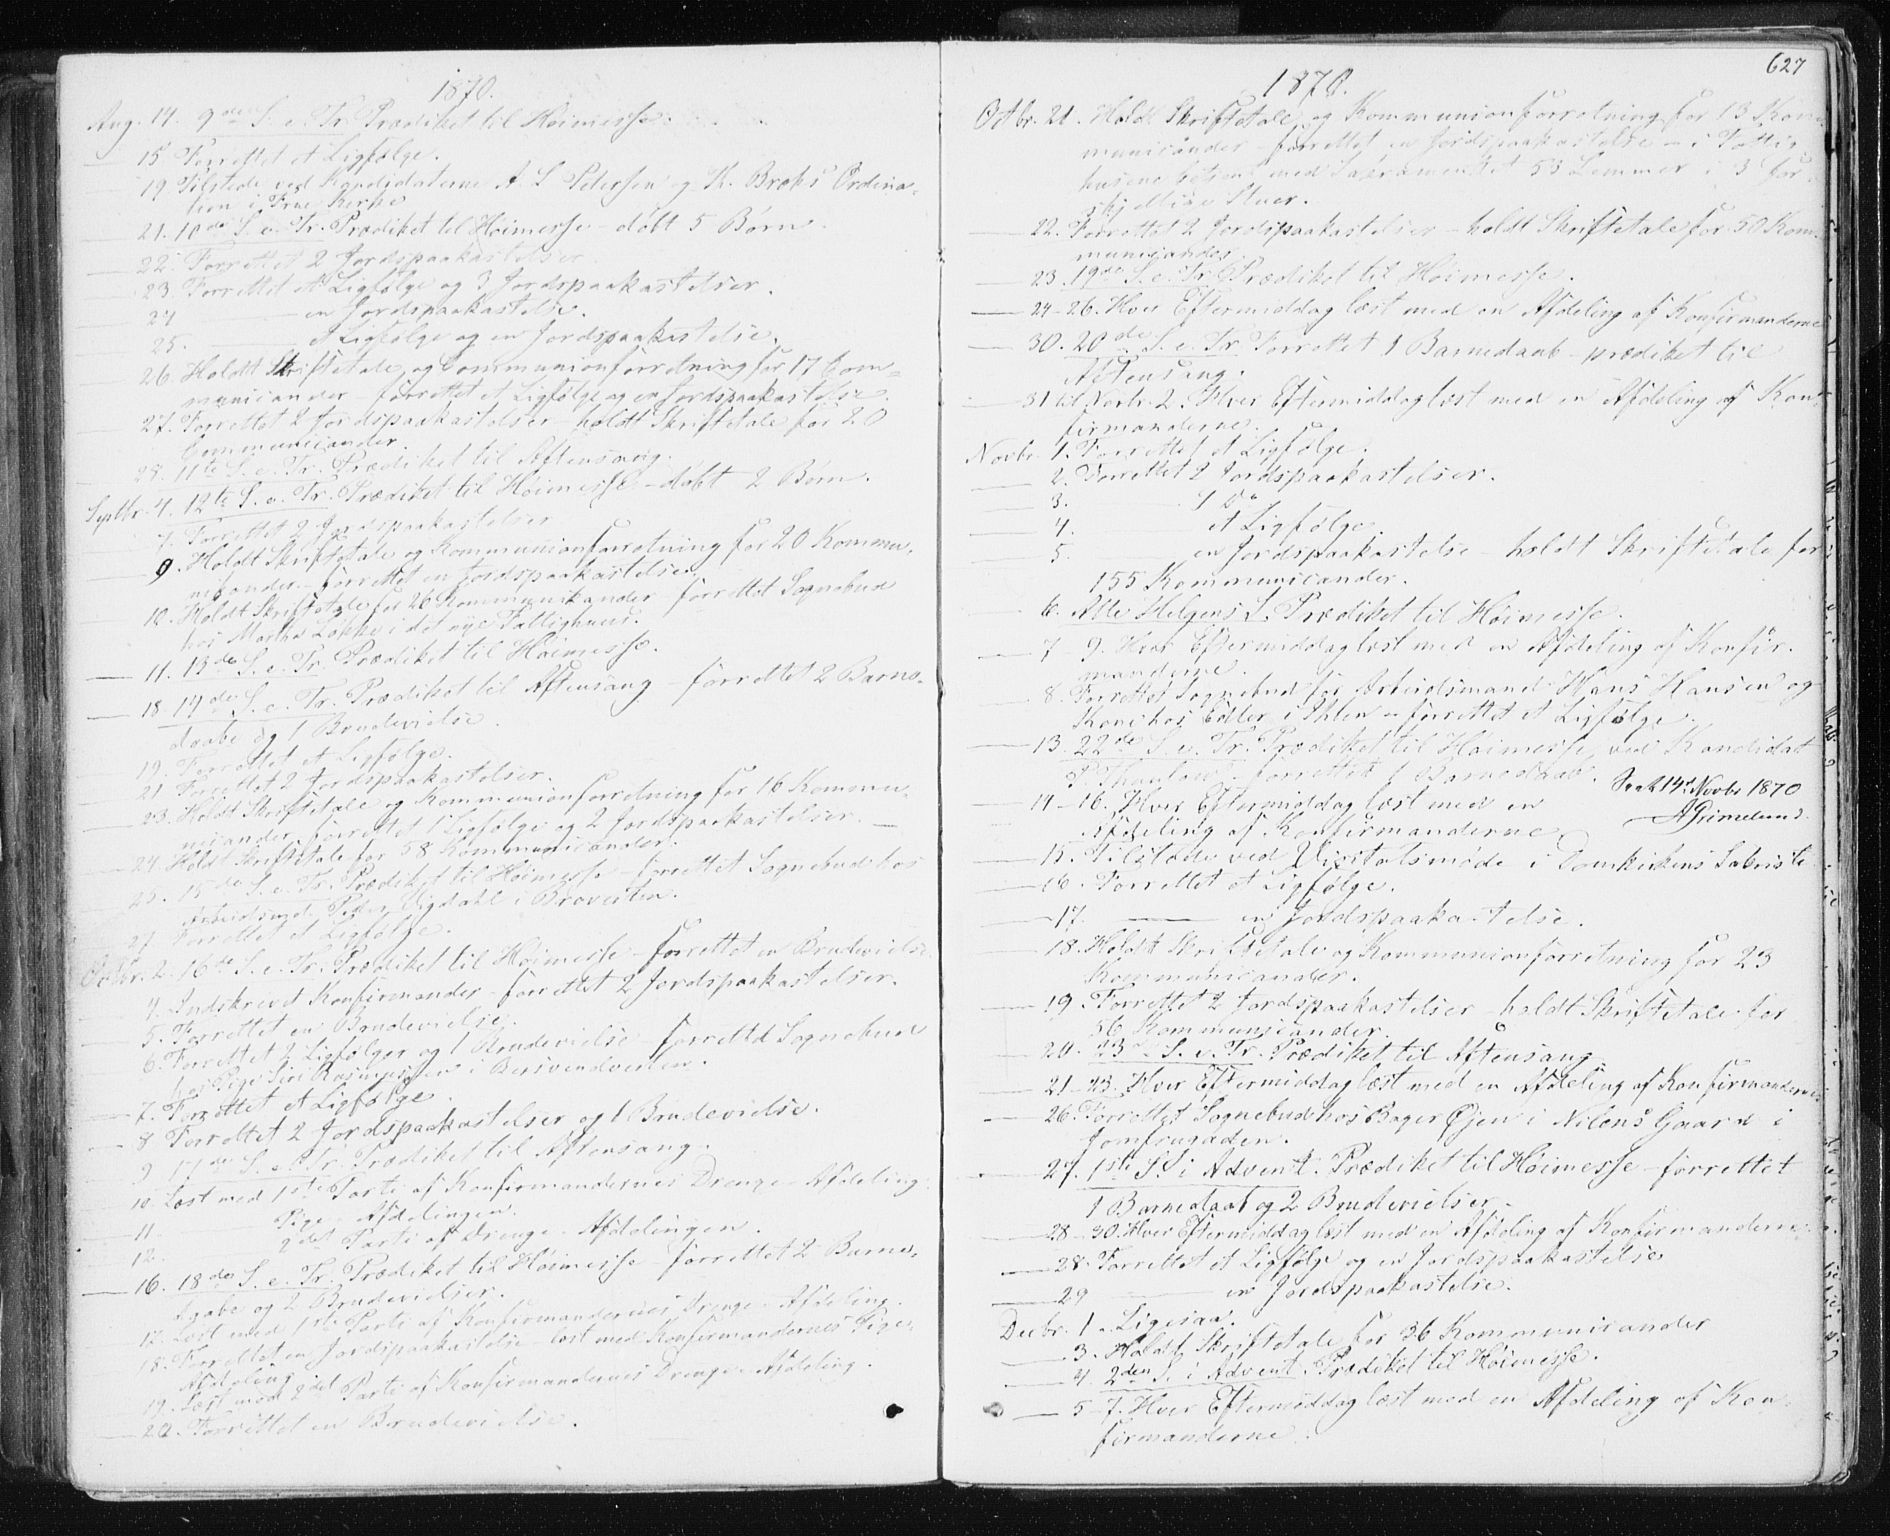 1870.
Aug. 14. 9de S. e. Tr. Prædiket til Høimesse.
15. Forrettet et Ligfølge.
19. Tilstede ved Kandidaterne A. L. Petersen og K. Bræks Ordina-
tion i Frue Kirke
21. 10de S. e. Tr. Prædiket til Høimesse - døbt 5 Børn.
22. Forrettet 2 Jordspaakastelser.
23. Forrettet et Ligfølge og 3 Jordspaakastelser.
24 ——— en Jordspaakastelse.
25. ——— et Ligfølge og en Jordspaakastelse.
26. Holdt Skriftetale og Communionforretning for 17 Com-
municander - forrettet et Ligfølge og en Jordspaakastelse.
27. Forrettet 2 Jordspaakastelser - holdt Skriftetale for 20
Communicander.
28. 11te S. e. Tr. Prædiket til Aftensang.
Septbr. 4. 12te S. e. Tr. Prædiket til Høimesse - døbt 2 Børn.
7. Forrettet 2 Jordspaakastelser
9. Holdt Skriftetale og Kommunionforretning for 20 Kommu-
nikander - forrettet en Jordspaakastelse.
10. Holdt Skriftetale for 26 Kommunikander - forrettet Sognebud
hos Martha Løkke i det nye Fattighuus.
11. 13de S. e. Tr. Prædiket til Høimesse.
18 14de S. e. Tr. Prædiket til Aftensang - forrettet 2 Barne-
daabe og 1 Brudevielse.
19. Forrettet et Ligfølge.
21 Forrettet 2 Jordspaakastelser.
23. Holdt Skriftetale og Kommunionforretning for 16 Kommu-
nicander, forrettet 1 Ligfølge og 2 Jordspaakastelser. —
24. Holdt Skriftetale for 58 Kommunicander.
25. 15de S. e. Tr. Prædiket til Høimesse - forrettet Sognebud hos
Arbeidsmd. Peder Ugdahl i Braveiten.
27 Forrettet et Ligfølge.
Octbr. 2. 16de S. e. Tr. Prædiket til Høimesse - forrettet en Brudevielse.
4. Indskrevet Konfirmander - forrettet 2 Jordspaakastelser.
5. Forrettet en Brudevielse.
6. Forrettet 2 Ligfølger og 1 Brudevielse - forrettet Sognebud
hos Pige Siri Rasmussen i Bersvendveiten.
7. Forrettet et Ligfølge.
8 Forrettet 2 Jordspaakastelser og 1 Brudevielse.
9 17de S. e. Tr. Prædiket til Aftensang.
10. Læst med 1ste Parti af Konfirmandernes Drenge-Afdeling.
11 ——— Pige-Afdelingen.
12. ——— 2det Parti af Drenge-Afdelingen.
16. 18de S. e. Tr. Prædiket til Høimesse - forrettet 2 Barne-
daabe og 2 Brudevielser.
17. Læst med 1ste Parti af Konfirmandernes Drenge-Afdeling.
18. Forrettet en Jordspaakastelse - læst med Konfirmandernes Pige-
Afdeling
19. Læst med 2det Parti af Konfirmandernes Drenge-Afdeling.
20. Forrettet en Brudevielse.
627
1870.
Octbr. 21. Holdt Skriftetale og Kommunionforretning for 13 Kom-
municander - forrettet en Jordspaakastelse - i Fattig-
husene betjent med Sakramentet 53 Lemmer i 3 for-
skjellige Stuer.
22. Forrettet 2 Jordspaakastelser - holdt Skriftetale for 50 Kom-
municander
23. 19de S. e. Tr. Prædiket til Høimesse.
24-26. Hver Eftermiddag læst med en Afdeling af Konfirmanderne
30. 20de S. e. Tr. Forrettet 1 Barnedaab - prædiket til
Aftensang.
31 til Novbr. 2. Hver Eftermiddag læst med en Afdeling af Kon-
firmanderne.
Novbr. 1. Forrettet et Ligfølge.
2. Forrettet 2 Jordspaakastelser.
3. ——— 1 do
4. ——— et Ligfølge.
5. ——— en Jordspaakastelse - holdt Skriftetale for
155 Kommunicander.
6. Alle Helgens S. Prædiket til Høimesse.
7-9. Hver Eftermiddag læst med en Afdeling af Konfir-
manderne
8. Forrettet Sognebud for Arbeidsmand Hans Hansen og
Kone hos Edler i Ihlen - forrettet et Ligfølge.
13. 22de S. e. Tr. Prædiket til Høimesse ved Kandidat
forrettet 1 Barnedaab.
Seet 14d. Novbr 1870
AGrimelund.
14-16. Hver Eftermiddag læst med en
Afdeling af Konfirmanderne
15. Tilstede ved Visitatsmøde i Domkirkens Sakristi
16. Forrettet et Ligfølge.
17. ——— en Jordspaakastelse.
18. Holdt Skriftetale og Kommunionforretning for 23
Kommunicander.
19. Forrettet 2 Jordspaakastelser - holdt Skriftetale for
56 Kommunicander.
20. 23de S. e. Tr. Prædiket til Aftensang
21-23. Hver Eftermiddag læst med en Afdeling af Konfirmanderne
26. Forrettet Sognebud hos Bager Øjen i Nilsens Gaard i
Jomfrugaden.
27. 1ste S. i Advent. Prædiket til Høimesse - forrettet
1 Barnedaab og 2 Brudevielser.
28-30. Hver Eftermiddag læst med en Afdeling af Konfirmanderne
28. Forrettet et Ligfølge og en Jordspaakastelse
29 ——— en Jordspaakastelse.
Decbr. 1. Ligesaa.
3. Holdt Skriftetale for 36 Kommunicander
4. 2den S. i Advent. Prædiket til Høimesse.
5-7. Hver Eftermiddag læst med en Afdeling af Kon-
firmanderne.